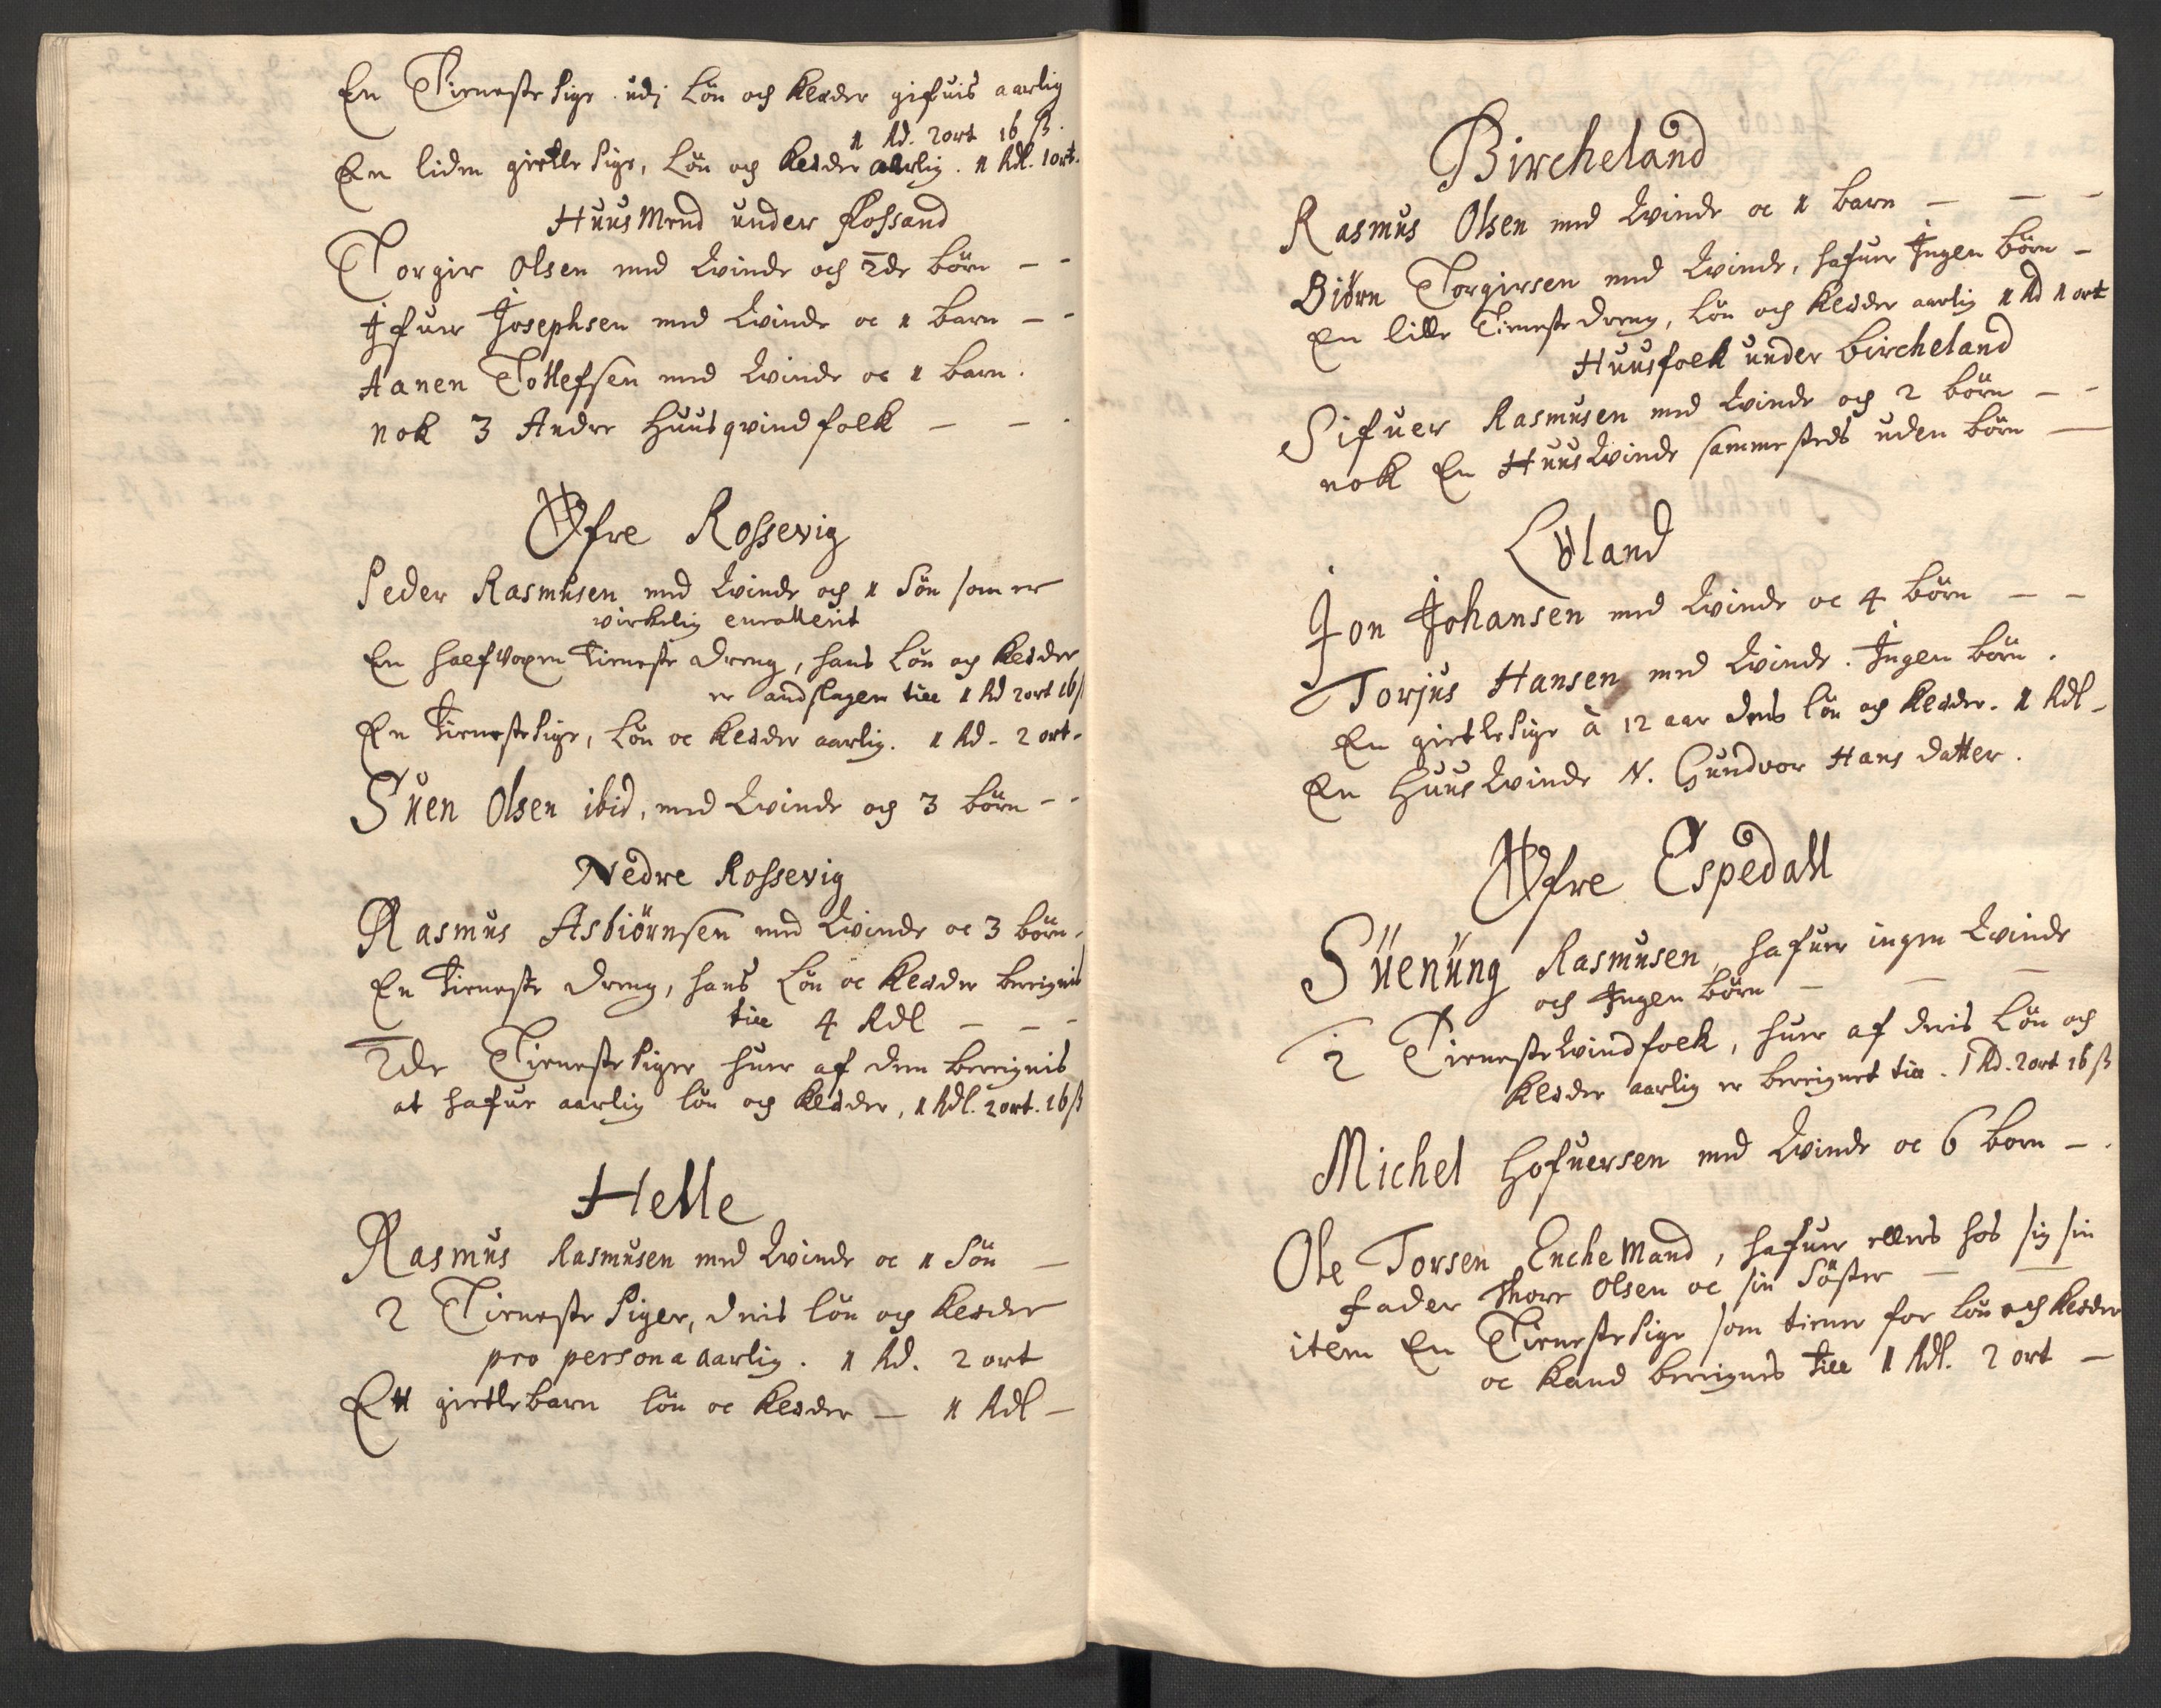 En Tieneste Pige udj Løn och Kleder gifuis aarlig
1 Rd. 2 ort 16 ß.
En liden gietle Pige, Løn och Kleder aarlig. 1 Rdl. 1 ort.
Huus Mend under Fossand
Torgier Olsen med Qvinde och 2de børn - -
Ifuer Josephsen med Qvinde oc 1 barn - -
Aanen Tollefsen med Qvinde oc 1 barn.
nok 3 Andre Huusqvindfolk - - -
Øfre Rossevig
Peder Rasmusen med Qvinde och 1 Søn som er
virkelig enrollerit
En halfvoxen Tieneste dreng, hans Løn och Kleder
er andslagen till 1 Rd 2 ort 16 ß
En Tieneste Pige, Løn oc Kleder aarlig. 1 Rd - 2 ort -
Suen Olsen ibid, med Qvinde och 3 børn - -
Nedre Rossevig
Rasmus Asbiørnsen med Qvinde oc 3 børn -
En Tieneste dreng, hans Løn oc Kleder bereignis
till 4 Rdl - - -
2de Tieneste Piger huer af dem bereignis
at hafue aarlig løn och Kleder, 1 Rdl. 2 ort. 16 ß
Helle
Rasmus Rasmusen med Qvinde oc 1 Søn -
2 Tieneste Piger, deris løn och Kleder
pro persona aarlig. 1 Rd. 2 ort
Ett gietlebarn løn oc Kleder - 1 Rdl -
Bircheland
Rasmus Olsen med Qvinde oc 1 barn - - -
Biørn Torgiersen med Qvinde, hafuer Ingen børn -
En lille Tieneste dreng, Løn och Kleder aarlig 1 Rd 1 ort
Huusfolk under bircheland
Sifuer Rasmusen med Qvinde och 2 børn - -
nok En Huus Qvinde sammesteds uden børn -
Løland
Jon Johansen med Qvinde oc 4 børn - -
Torjus Hansen med Qvinde. Ingen børn.
En gietle Pige à 12 aar dens løn och Kleder. 1 Rdl -
En Huus Qvinde N. Gundvor Hans datter.
Øfre Espedall
Suenung Rasmusen, hafuer ingen Qvinde
och Ingen børn - - -
2 Tieneste Qvindfolk, huer af deris Løn och
Kleder aarlig er bereignet till. 1 Rd. 2 ort 16 ß
Michel Hofuersen med Qvinde oc 6 born - .
Ole Torsen Enche Mand, hafuer ellers hos sig sin
fader Thore Olsen oc sin Søster - -
item En Tieneste Pige som tiener for løn och Kleder
oc kand bereignes till 1 Rdl. 2 ort -